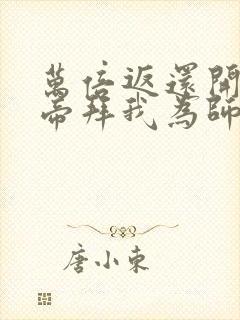 萬倍返還開
帝拜我為師
唐小東